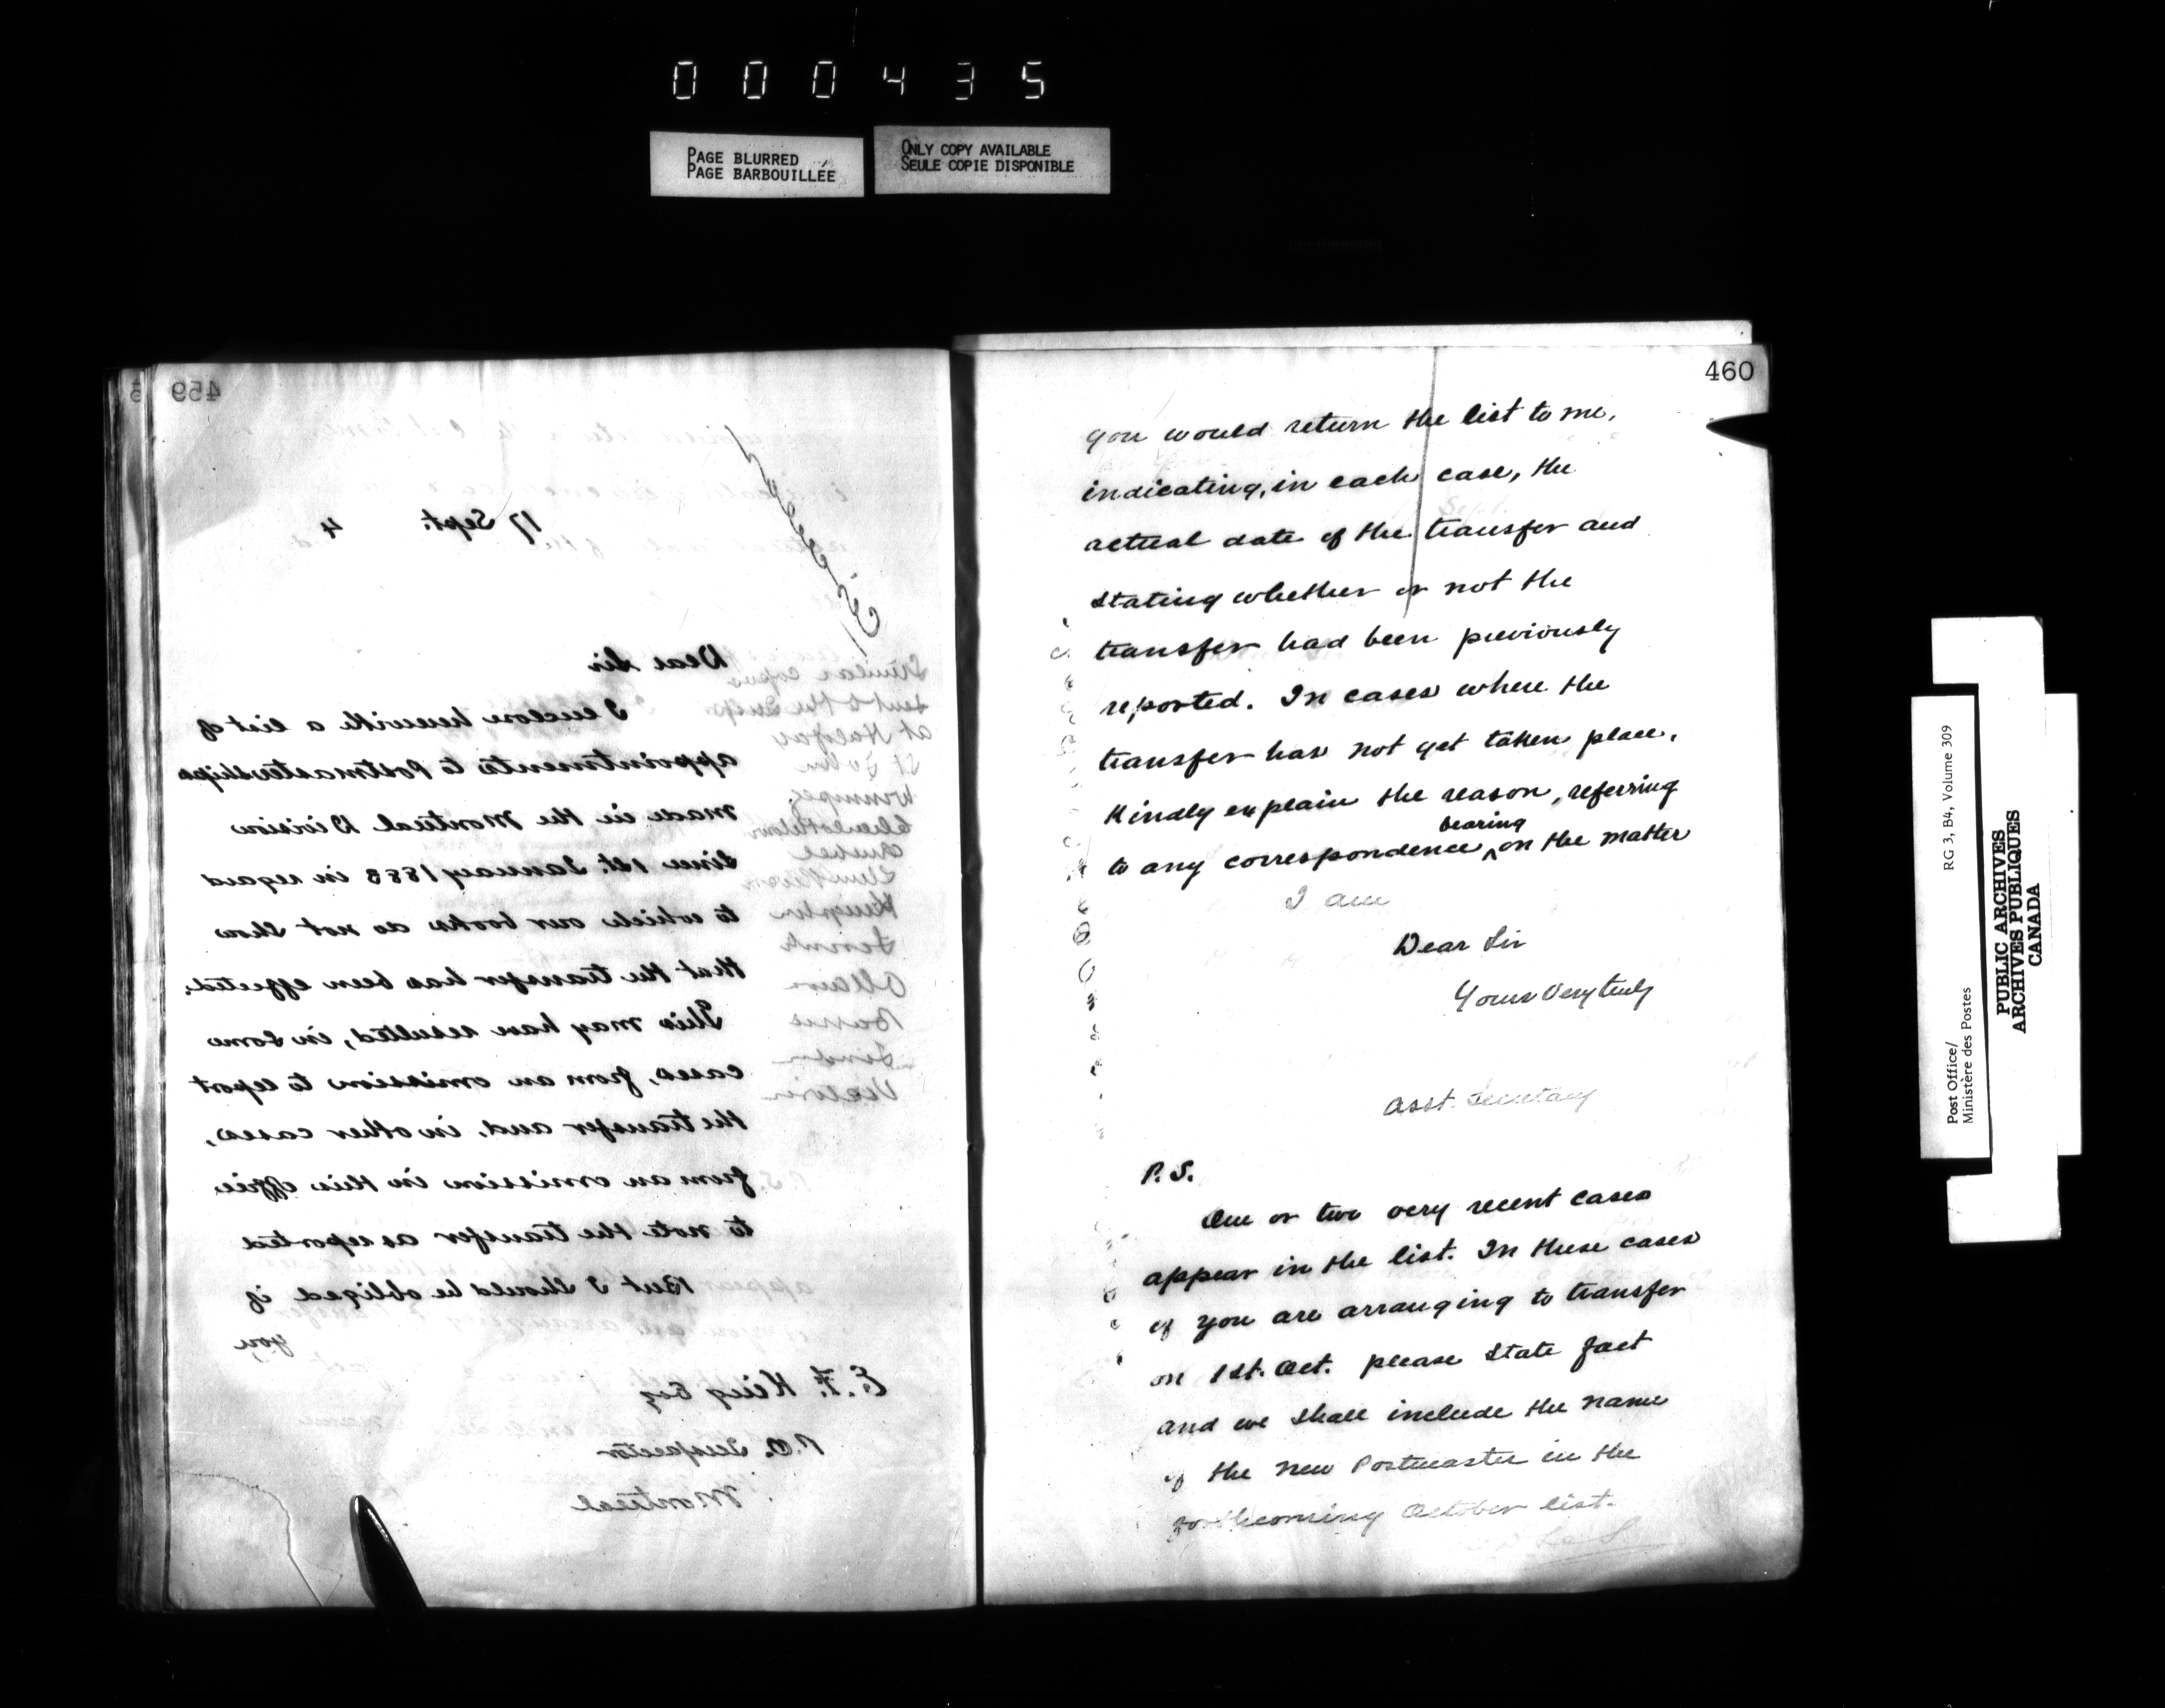 000435
PAGE BLURRED
PAGE BARBOUILLÉE
ONLY COPY AVAILABLE
SEULE COPIE DISPONIBLE
459
17 Sept. 4
Dear Sir
I enclose herewith a list of
appointments to Postmasterships
made in the Montreal Division
since 1st. January 1883 in regard
to which our books do not show
that the transfer has been effected.
This may have resulted, in some
cases, from an omission to report
the transfer and, in other cases,
from an omission in this office
to note the transfer as reported
But I should be obliged if
you
Similar copies
sent to the Inspr
at Halifax
St John
Winnipeg
Charlottetown
Quebec
Kingston
Toronto
Ottawa
Barrie
London
Victoria
E. F. King Esq
P.O. Inspector
Montreal
460
you would return the list to me,
indicating, in each case, the
actual date of the transfer and
stating whether or not the
transfer had been previously
reported. In cases where the
transfer has not yet taken place,
Kindly explain the reason, referring
bearing
to any correspondence ^ on the matter
I am
Dear Sir
Yours very truly
Asst. Secretary
P.S.
One or two very recent cases
appear in the list. In these cases
if you are arranging to transfer
on 1st. Oct. please state fact
and we shall include the name
of the new Postmaster in the
forthcoming October list.
Post Office/
Ministère des Postes
RG 3, B4, Volume 309
PUBLIC ARCHIVES
ARCHIVES PUBLIQUES
CANADA